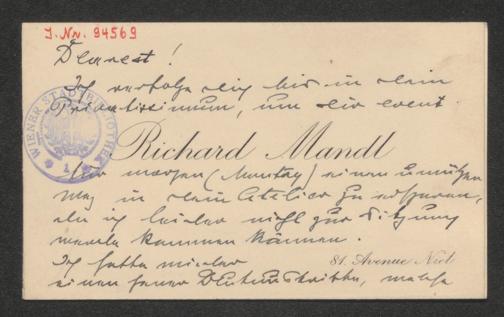 J. Nr. 94569
Dearest!
Ich verfolge dich bis in dein
Privatissimum, um dir event
WIENER STADTBIBLIOTHEK
Richard Mandl
für morgen (Montag) einen unnützen
Weg in dein Atelier zu ersparen,
da ich leider nicht zur Sitzung
werde kommen können.
81. Avenue Niel
Ich hatte wieder
einen jener